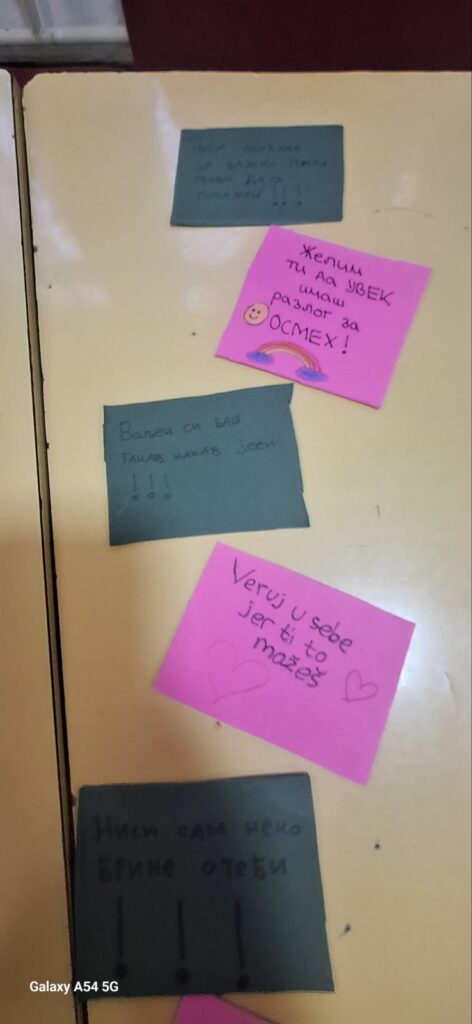 ТВОЈЕ
ЈЕ ВАЖНО ИМАШ
ПРАВО ДА ГА
ПОКАЖЕШ !!!
Желим
ти да УВЕК
имаш
разлог за
ОСМЕХ!
Ваљен си баш
такав какав јеси
!!!
Veruj u sebe
jer ti to
možeš
Ниси сам неко
БРИНЕ О ТЕБИ
!!!
Galaxy A54 5G